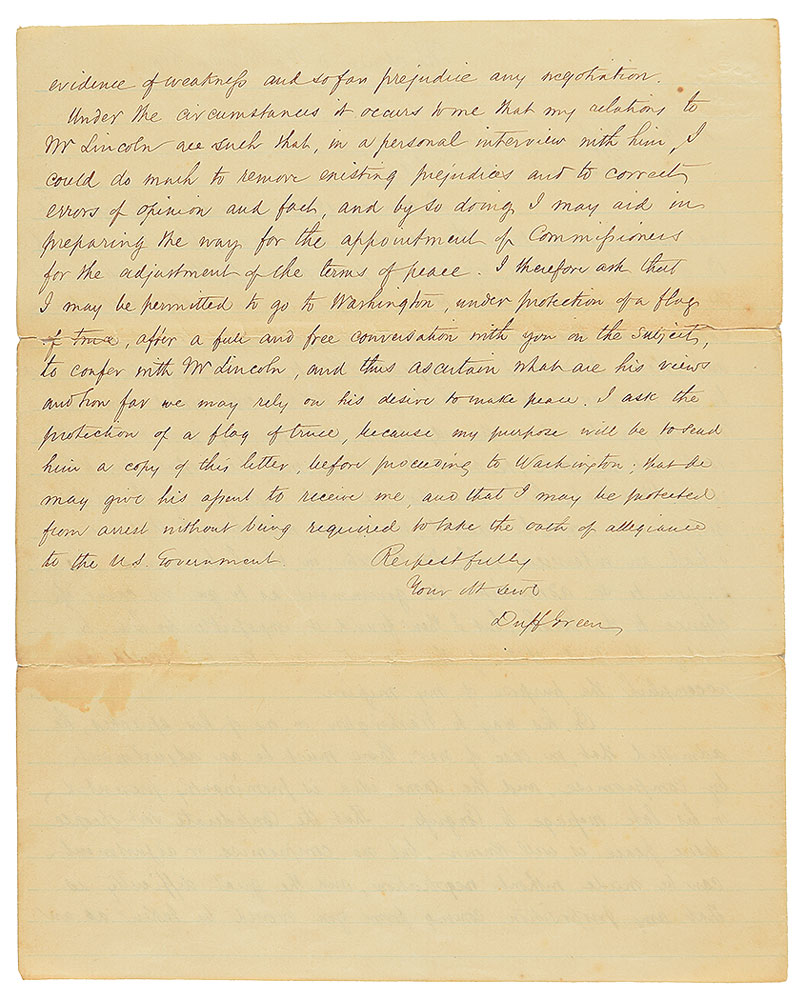 evidence of weakness and so far prejudice any negotiation.
Under the circumstances it occurs to me that my relations to
Mr Lincoln are such that, in a personal interview with him, I
could do much to remove existing prejudices and to correct
errors of opinion and fact, and by so doing I may aid in
preparing the way for the appointment of Commissioners
for the adjustment of the terms of peace. I therefore ask that
I may be permitted to go to Washington, under protection of a flag
of truce, after a full and free conversation with you on the subject,
to confer with Mr Lincoln, and thus ascertain what are his views
and how far we may rely on his desire to make peace. I ask the
protection of a flag of truce, because my purpose will be to send
him a copy of this letter, before proceeding to Washington; that he
may give his assent to receive me, and that I may be protected
from arrest without being required to take the oath of allegiance
to the U.S. Government.
Respectfully
Your Obt servt
Duff Green